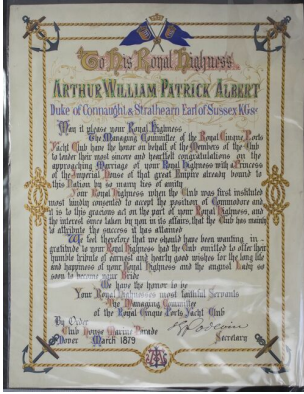 To His Royal Highness
ARTHUR WILLIAM PATRICK ALBERT
Duke of Connaught & Strathearn Earl of Sussex KG &c
May it please your Royal Highness
The Managing Committee of the Royal Cinque Ports
Yacht Club have the honor on behalf of the Members of the Club
to tender their most sincere and heartfelt congratulations on the
approaching Marriage of your Royal Highness with a Princess
of the Imperial House of that great Empire already bound to
this Nation by so many ties of amity
Your Royal Highness when the Club was first instituted
most kindly consented to accept the position of Commodore and
it is to this gracious act on the part of your Royal Highness, and
the interest since taken by you in its affairs, that the Club has mainly
to attribute the success it has attained
We feel therefore that we should have been wanting in
gratitude to your Royal Highness had the Club omitted to offer their
humble tribute of earnest and hearty good wishes for the long life
and happiness of your Royal Highness and the august Lady so
soon to become your Bride
We have the honor to be
Your Royal Highnesses most faithful Servants
The Managing Committee
of the Royal Cinque Ports Yacht Club
By Order
Club House Marine Parade
Dover March 1879
Secretary